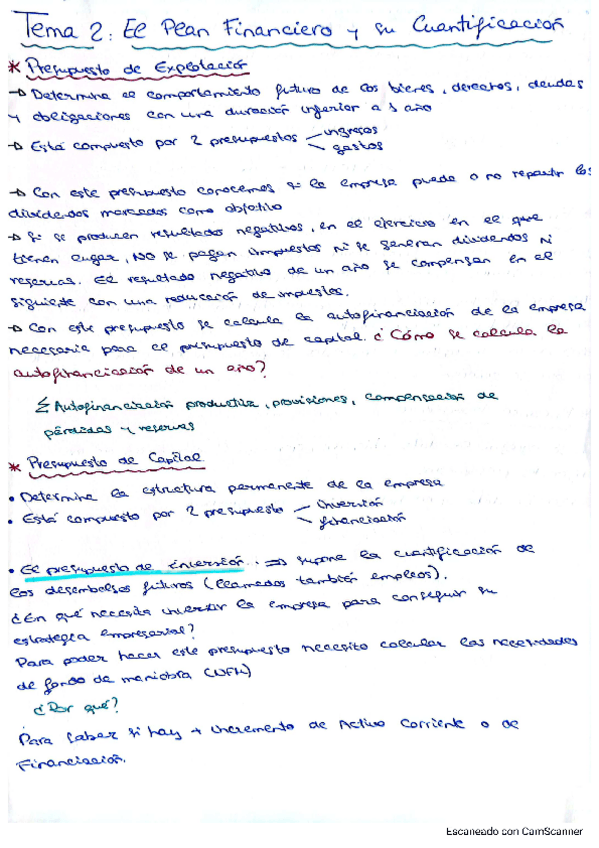 Tema 2: El Plan Financiero y su Cuantificación
* Presupuesto de Explotación
→ Determina el comportamiento futuro de los bienes, derechos, deudas
y obligaciones con una duración inferior a 1 año
→ Está compuesto por 2 presupuestos ingresos
gastos
→ Con este presupuesto conocemos si la empresa puede o no repartir los
dividendos marcados como objetivo
→ Si se producen resultados negativos, en el ejercicio en el que
tienen lugar, NO se pagan impuestos ni se generan dividendos ni
reservas. El resultado negativo de un año se compensan en el
siguiente con una reducción de impuestos.
→ Con este presupuesto se calcula la autofinanciación de la empresa
necesaria para el presupuesto de capital. ¿Cómo se calcula la
autofinanciación de un año?
Σ Autofinanciación productiva, provisiones, compensación de
pérdidas y reservas
* Presupuesto de Capital
• Determina la estructura permanente de la empresa
• Está compuesto por 2 presupuesto inversión
financiación
• El presupuesto de inversión. ⇒ supone la cuantificación de
los desembolsos futuros (llamados también empleos).
¿En qué necesita invertir la empresa para conseguir su
estrategia empresarial?
Para poder hacer este presupuesto necesito calcular las necesidades
de fondo de maniobra (NFM)
¿Por qué?
Para saber si hay + incremento de Activo Corriente o de
Financiación.
Escaneado con CamScanner